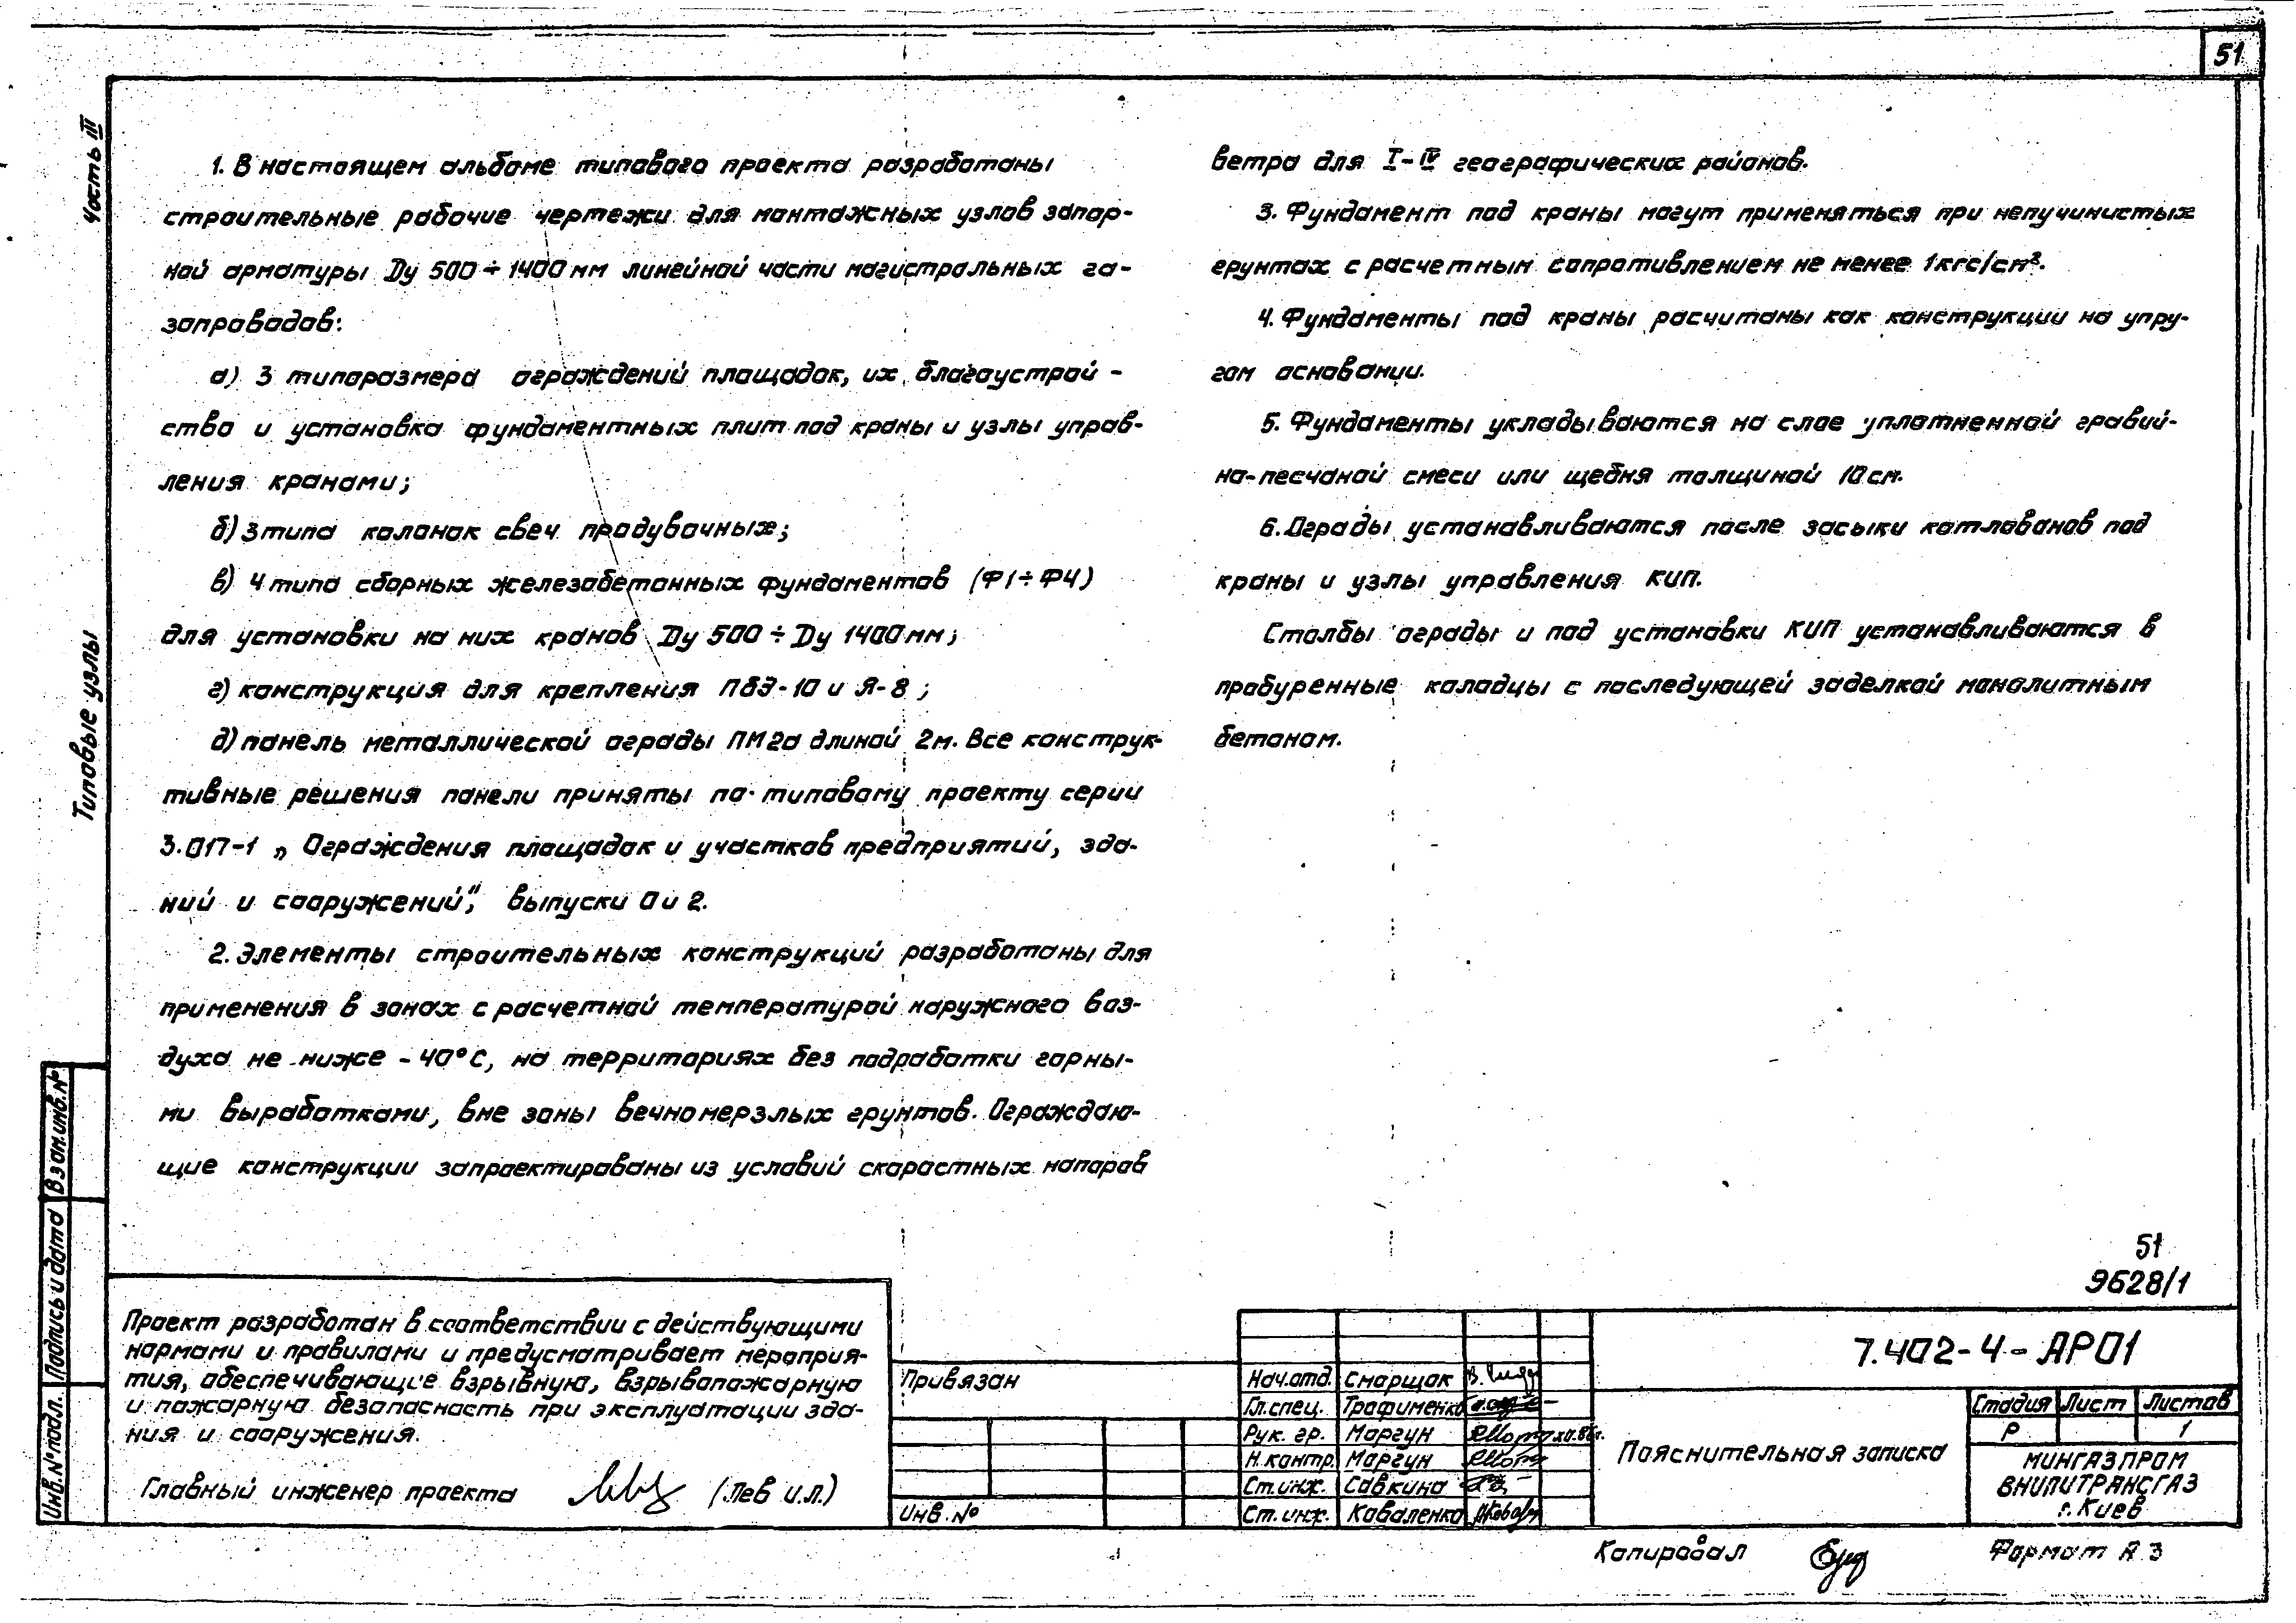 51
Часть III
Типовые узлы
1. В настоящем альбоме типового проекта разработаны
строительные рабочие чертежи для монтажных узлов запор-
ной арматуры Ду 500 ÷ 1400 мм линейной части магистральных га-
зопроводов:
а) 3 типоразмера ограждений площадок, их благоустрой-
ство и установка фундаментных плит под краны и узлы управ-
ления кранами;
б) 3 типа колонок свеч продувочных;
в) 4 типа сборных железобетонных фундаментов (Ф1÷Ф4)
для установки на них кранов Ду 500 ÷ Ду 1400 мм;
г) конструкция для крепления ПБЭ-10 и Я-8;
д) панель металлической ограды ПМ2а длиной 2м. Все конструк-
тивные решения панели приняты по типовому проекту серии
3.017-1 „Ограждения площадок и участков предприятий, зда-
ний и сооружений", выпуски 0 и 2.
2. Элементы строительных конструкций разработаны для
применения в зонах с расчетной температурой наружного воз-
духа не ниже -40°С, на территориях без подработки горны-
ми выработками, вне зоны вечномерзлых грунтов. Ограждаю-
щие конструкции запроектированы из условий скоростных напоров
ветра для I-IV географических районов.
3. Фундамент под краны могут применяться при непучинистых
грунтах с расчетным сопротивлением не менее 1кгс/см².
4. Фундаменты под краны расчитаны как конструкции на упру-
гом основании.
5. Фундаменты укладываются на слое уплотненной гравий-
но-песчаной смеси или щебня толщиной 10 см.
6. Ограды устанавливаются после засыки котлованов под
краны и узлы управления КИП.
Столбы ограды и под установки КИП устанавливаются в
пробуренные колодцы с последующей заделкой монолитным
бетоном.
51
9628/1
Проект разработан в соответствии с действующими
нормами и правилами и предусматривает мероприя-
тия, обеспечивающие взрывную, взрывопожарную
и пожарную безопасность при эксплуатации зда-
ния и сооружения.
Главный инженер проекта (Лев И.Л.)
Привязан
Инв. №
Нач.отд. Сморщок
Гл.спец. Трофименко
Рук. гр. Моргун
Н.контр. Моргун
Ст.инж. Савкина
Ст.инж. Коваленко
7.402-4-АР01
Пояснительная записка
Стадия Лист Листов
Р 1
МИНГАЗПРОМ
ВНИПИТРАНСГАЗ
г. Киев
Взам.инв.№
Подпись и дата
Инв.№ подл.
Копировал
Формат А3